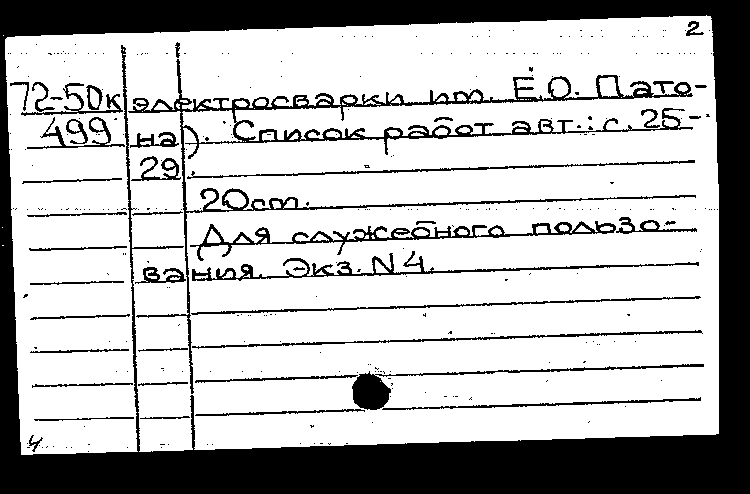 2
72-50к электросварки им. Е.О. Пато-
499 на). Список работ авт.: с. 25-
29.
20cm.
Для служебного пользо-
вания. Экз. N 4.
4